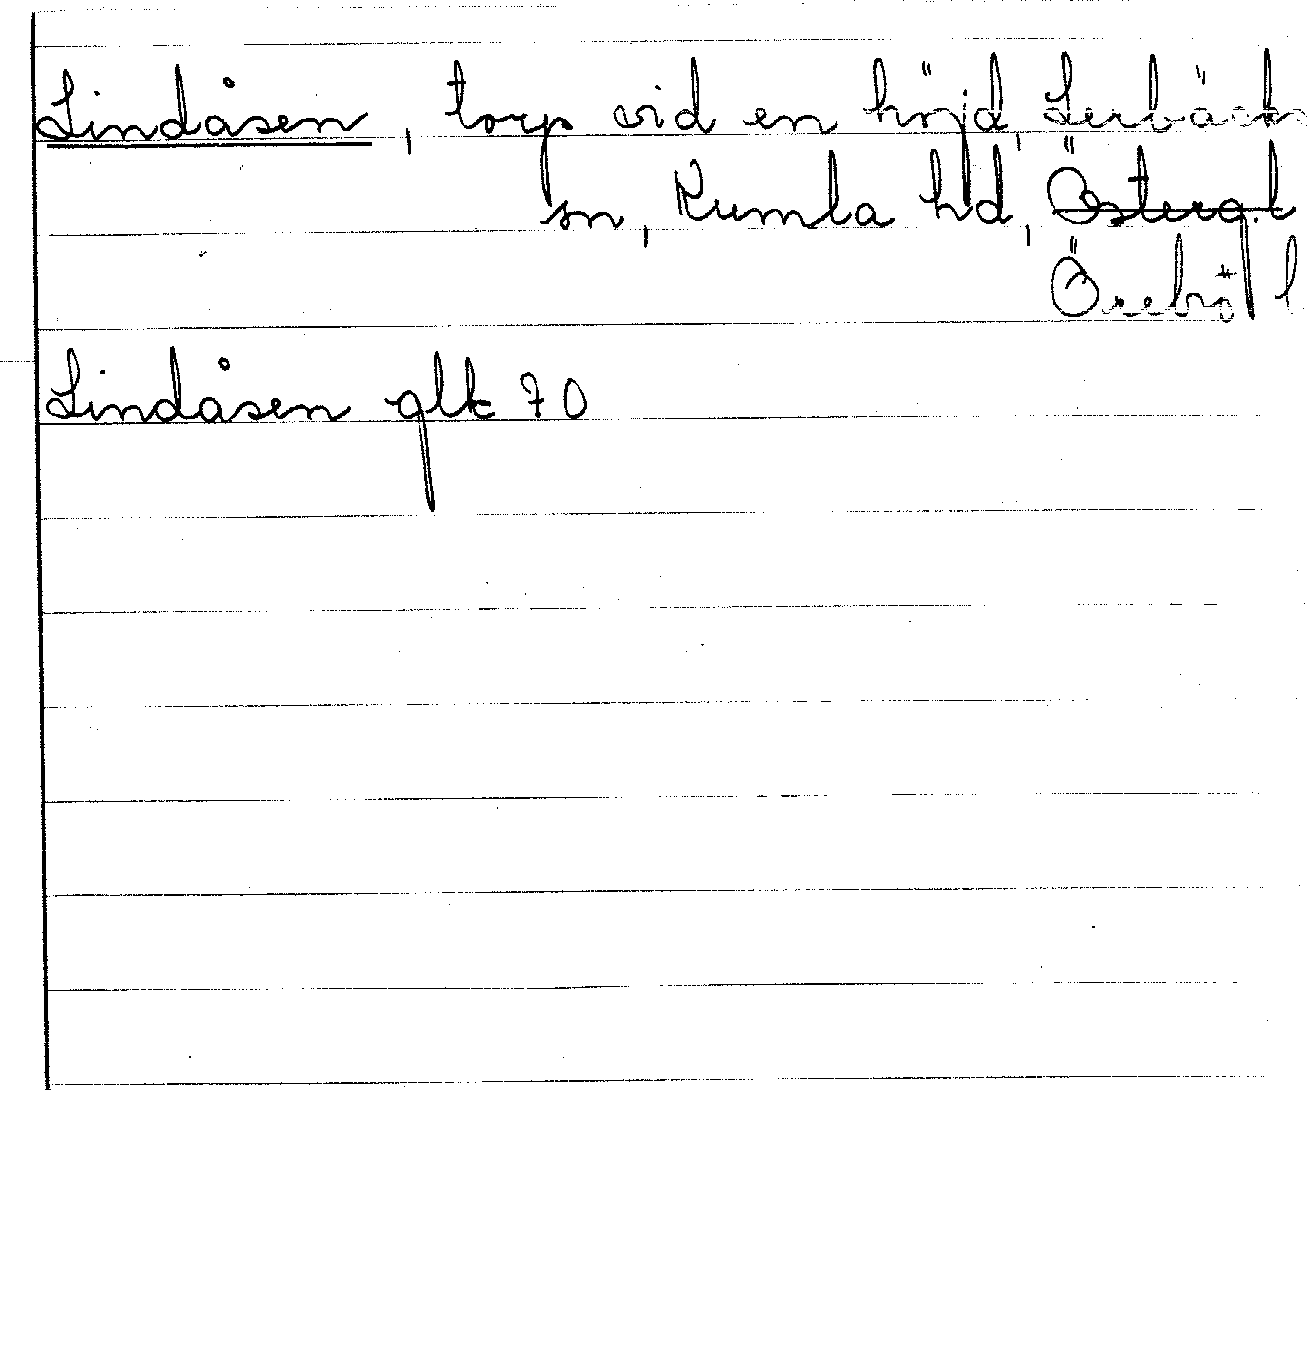 Lindåsen, torp vid en höjd, Lerbäcks
sn, Kumla hd, Österg. l
Örebro l
Lindåsen glk 70